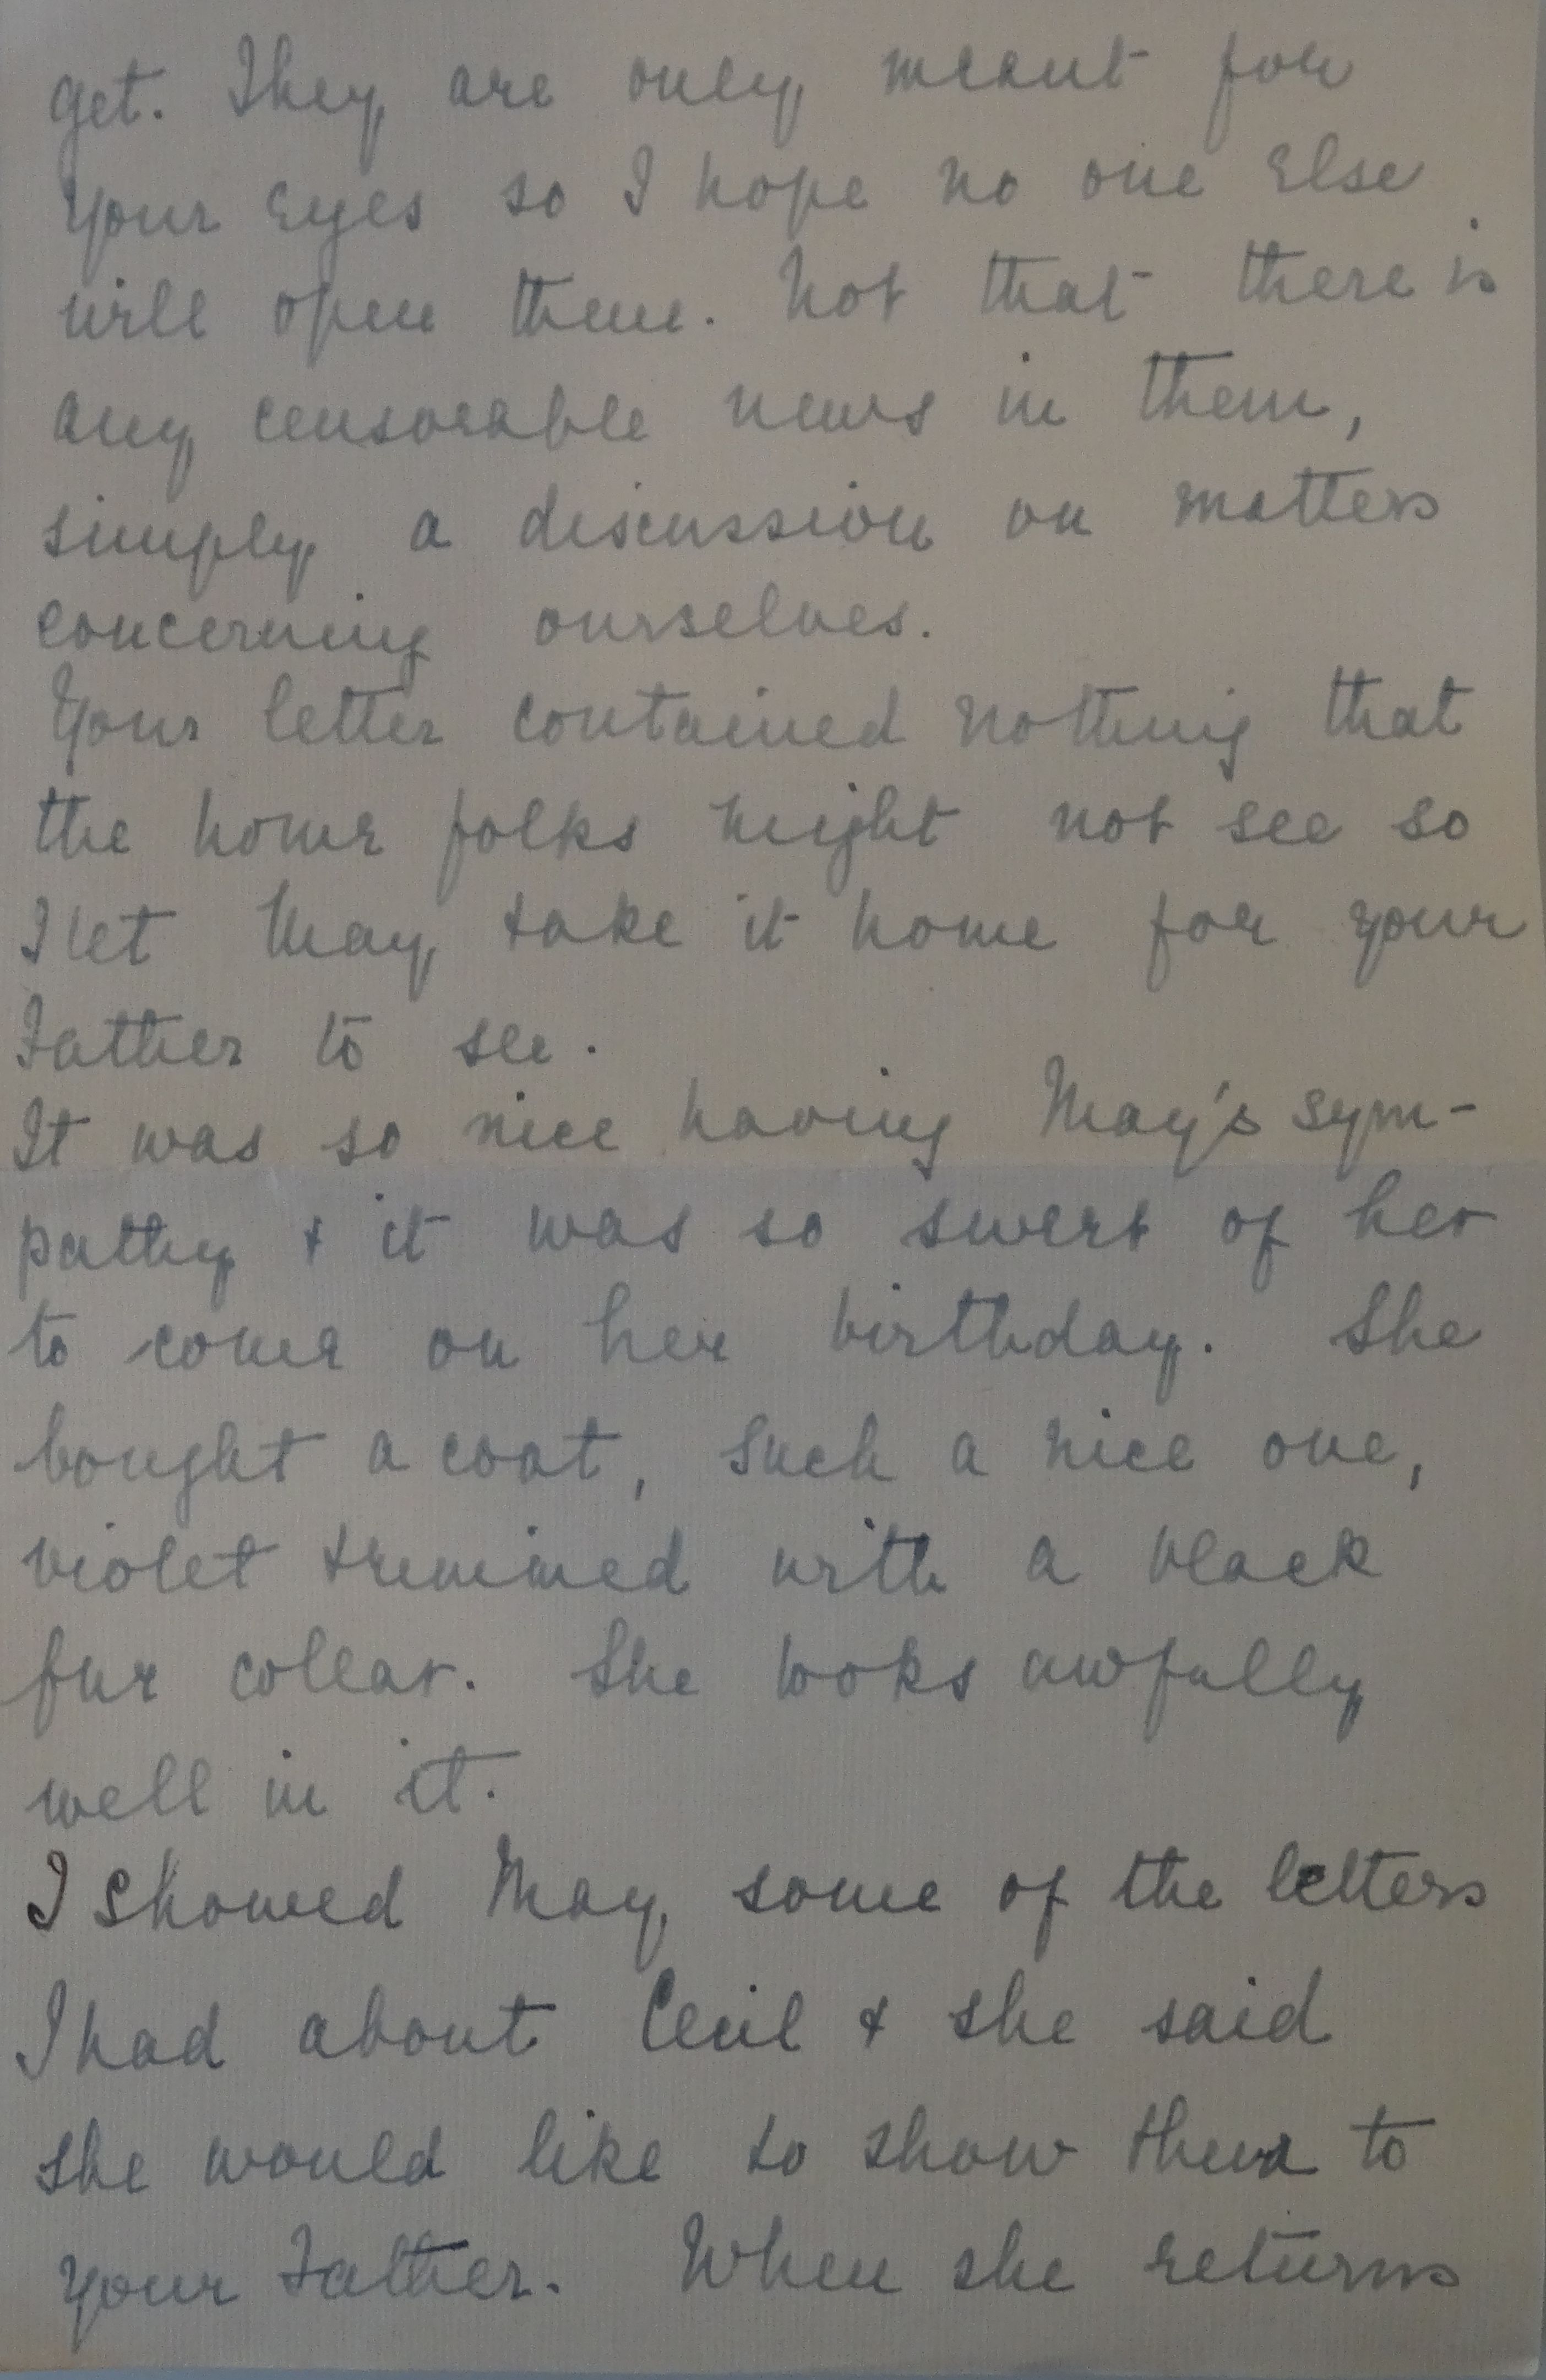 get. They are only meant for
your eyes so I hope no one else
will open them. Not that there is
any censorable news in them,
simply a discussion on matters
concerning ourselves.
Your letter contained nothing that
the home folks might not see so
I let May take it home for your
Father to see.
It was so nice having May's sym-
pathy & it was so sweet of her
to come on her birthday. She
bought a coat, such a nice one,
violet trimmed with a black
fur collar. She looks awfully
well in it.
I showed May some of the letters
I had about Cecil & she said
she would like to show them to
your Father. When she returns